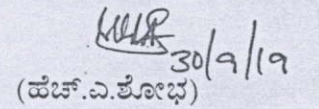 30/9/19
(ಹೆಚ್.ಎ.ಶೋಭ)